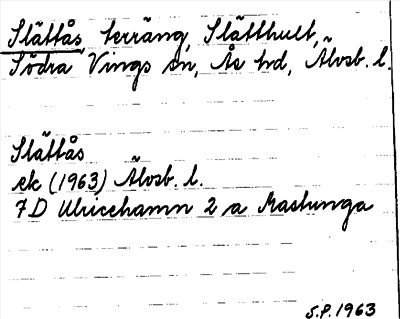 Slättås, terräng, Slätthult,
Södra Vings sn, Ås hd, Älvsb. l.
Slättås
ek (1963) Älvsb. l.
7D Ulricehamn 2 a Mastunga
S.P. 1963